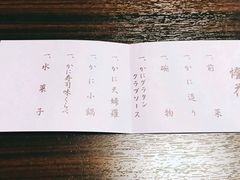 一、前菜
一、かに造り
一、碗物
一、かにグラタン
クラブソース
一、かに天婦羅
一、かに小鍋
一、かに寿司味くらべ
一、水菓子